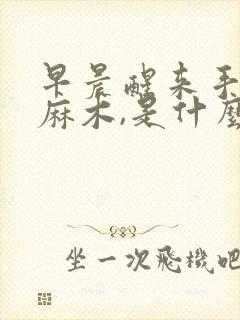 早晨醒来手
麻木,是什麼
坐一次飛機吧